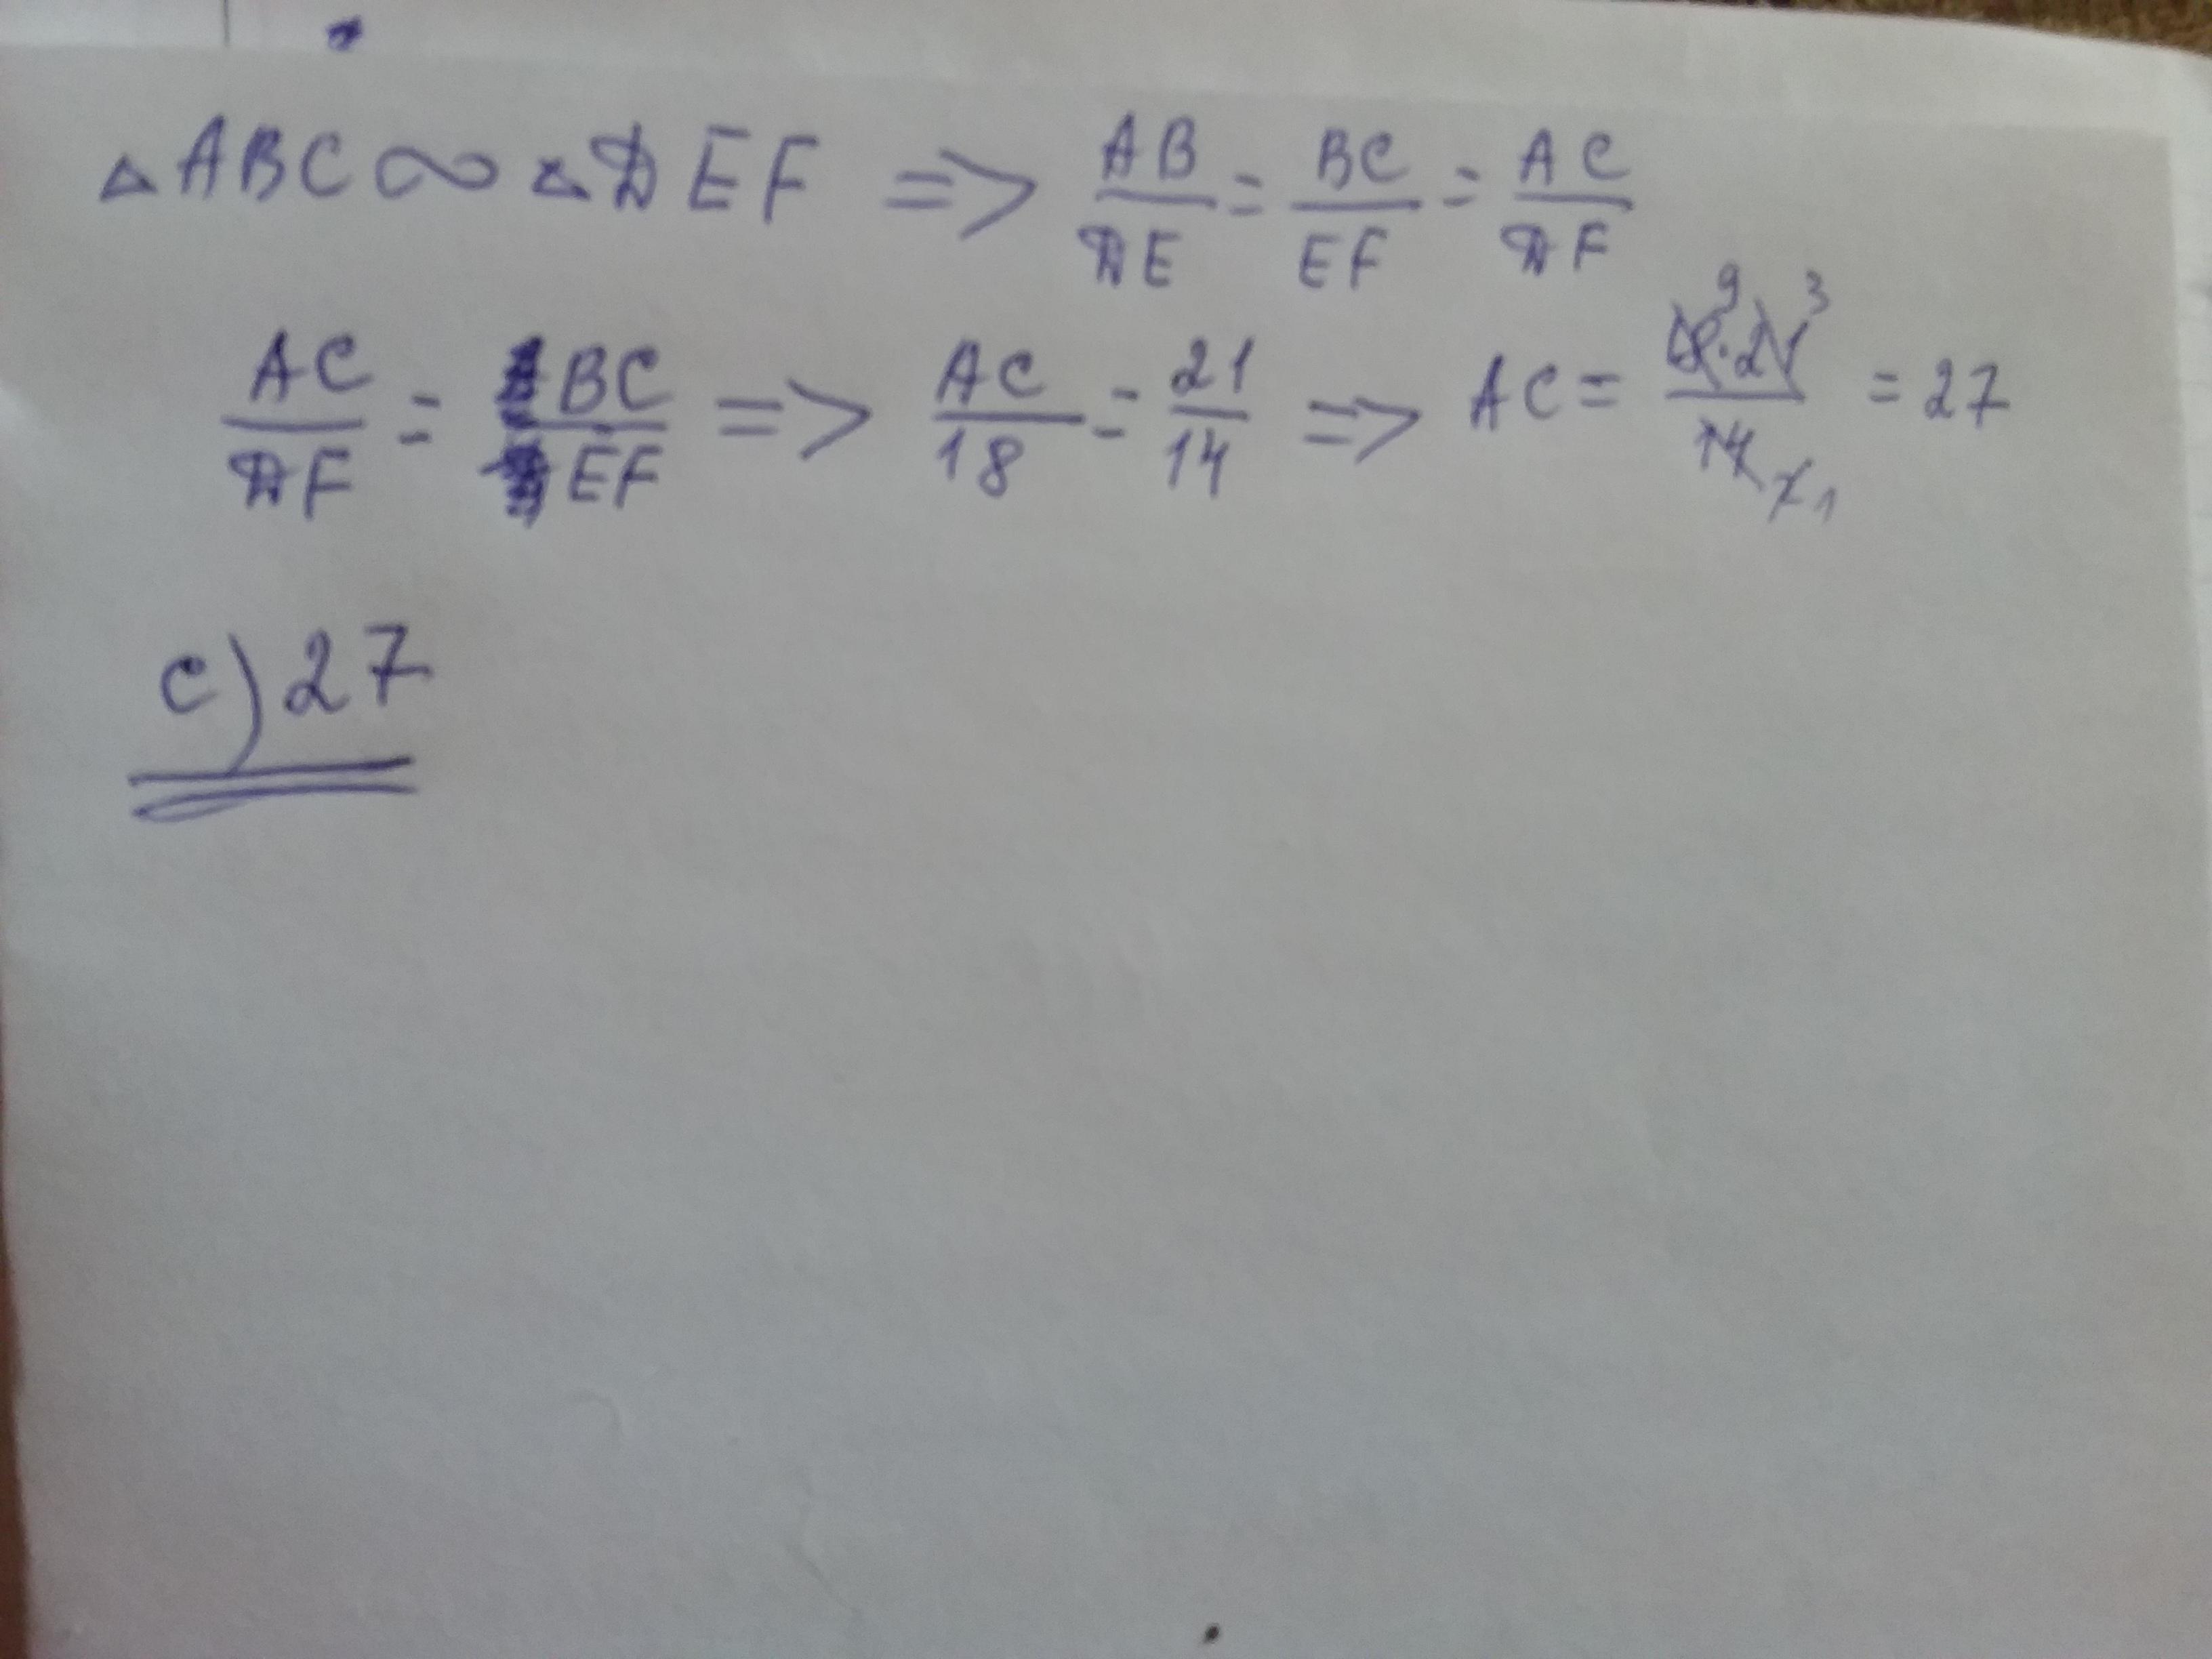 △ABC ∾ △DEF => AB/DE = BC/EF = AC/DF
AC/DF = BC/EF => AC/18 = 21/14 => AC = 18⁹·21³/14 7 1 = 27
c) 27